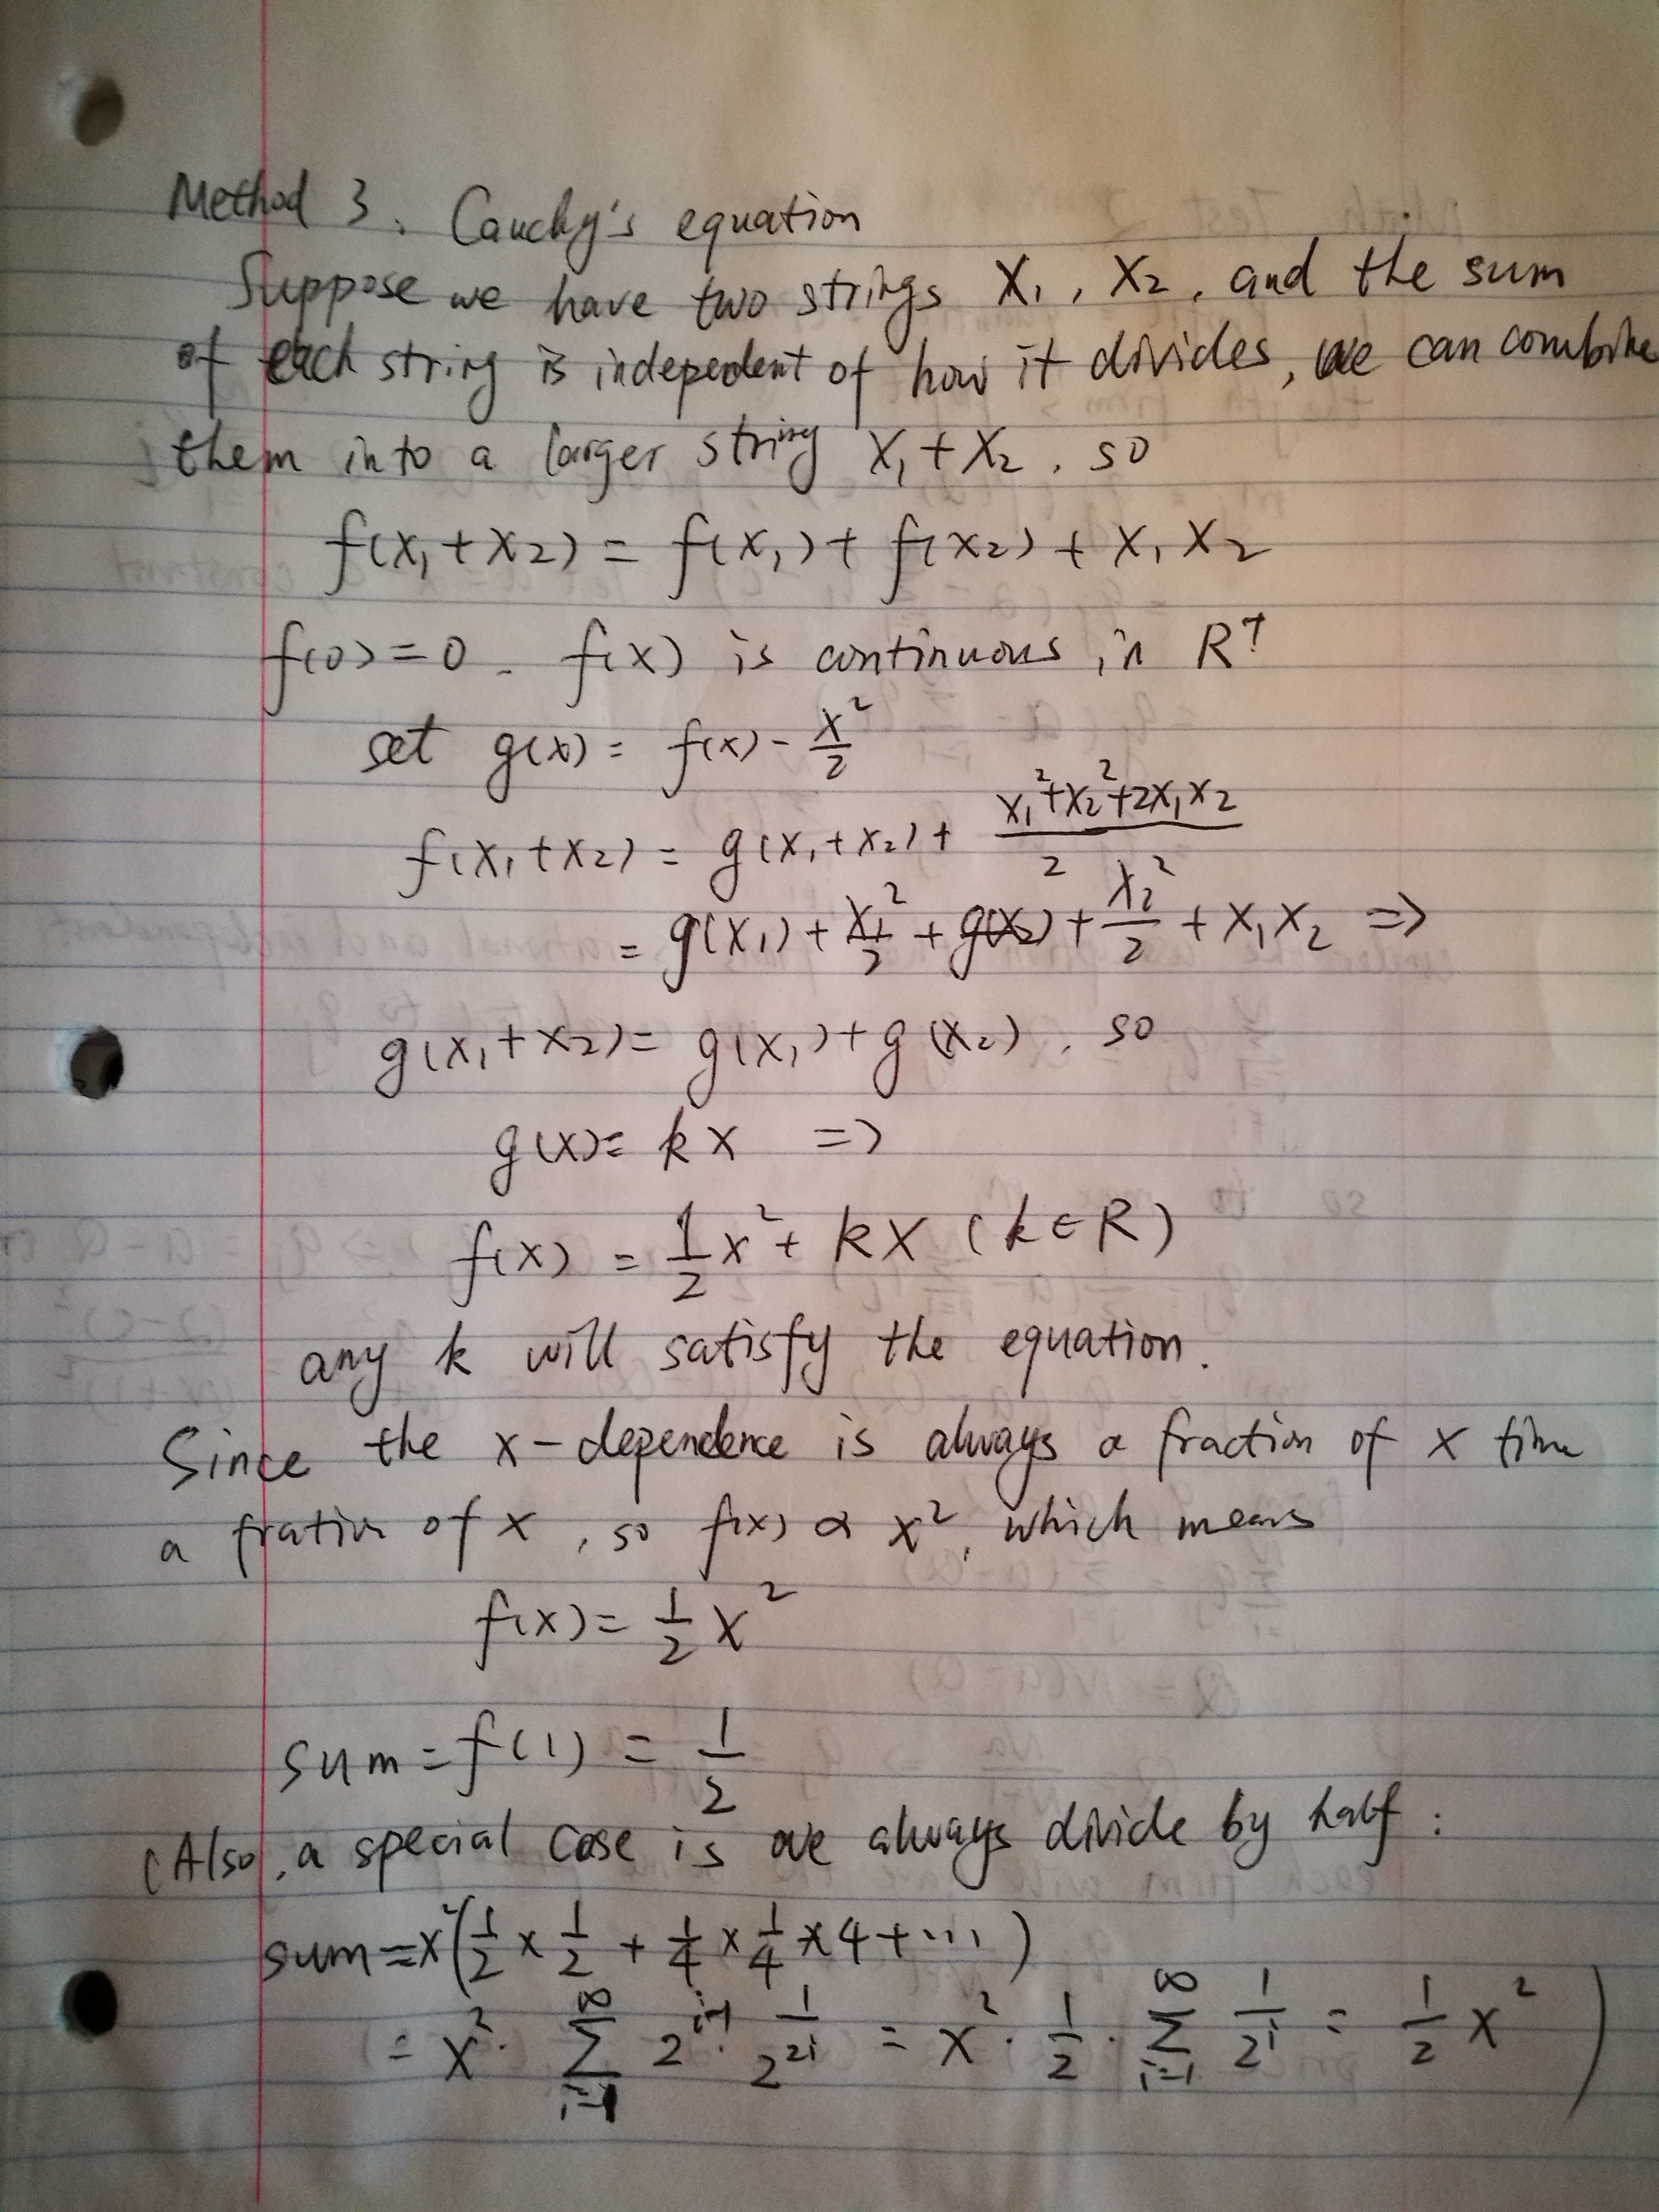 Method 3. Cauchy's equation
Suppose we have two strings X₁, X₂, and the sum
of each string is independent of how it divides, we can combine
them into a larger string X₁+X₂. so
f(x₁+x₂) = f(x₁)+f(x₂)+x₁x₂
f(0)=0. f(x) is continuous in R⁺
set g(x) = f(x) - x²/2
f(x₁+x₂) = g(x₁+x₂) + (x₁²+x₂²+2x₁x₂)/2
= g(x₁) + x₁²/2 + g(x₂) + x₂²/2 + x₁x₂ =>
g(x₁+x₂) = g(x₁)+g(x₂). so
g(x) = kx =>
f(x) = 1/2 x² + kx (k∈R)
any k will satisfy the equation.
Since the x-dependence is always a fraction of x time
a fration of x, so f(x) ∝ x², which means
f(x) = 1/2 x²
sum = f(1) = 1/2
(Also, a special case is we always divide by half:
sum = x²(1/2 × 1/2 + 1/4 × 1/4 × 4 + ...)
= x² · ∑_{i=1}^{∞} 2^{i-1} · 1/2^{2i} = x² · 1/2 · ∑_{i=1}^{∞} 1/2^i = 1/2 x² )